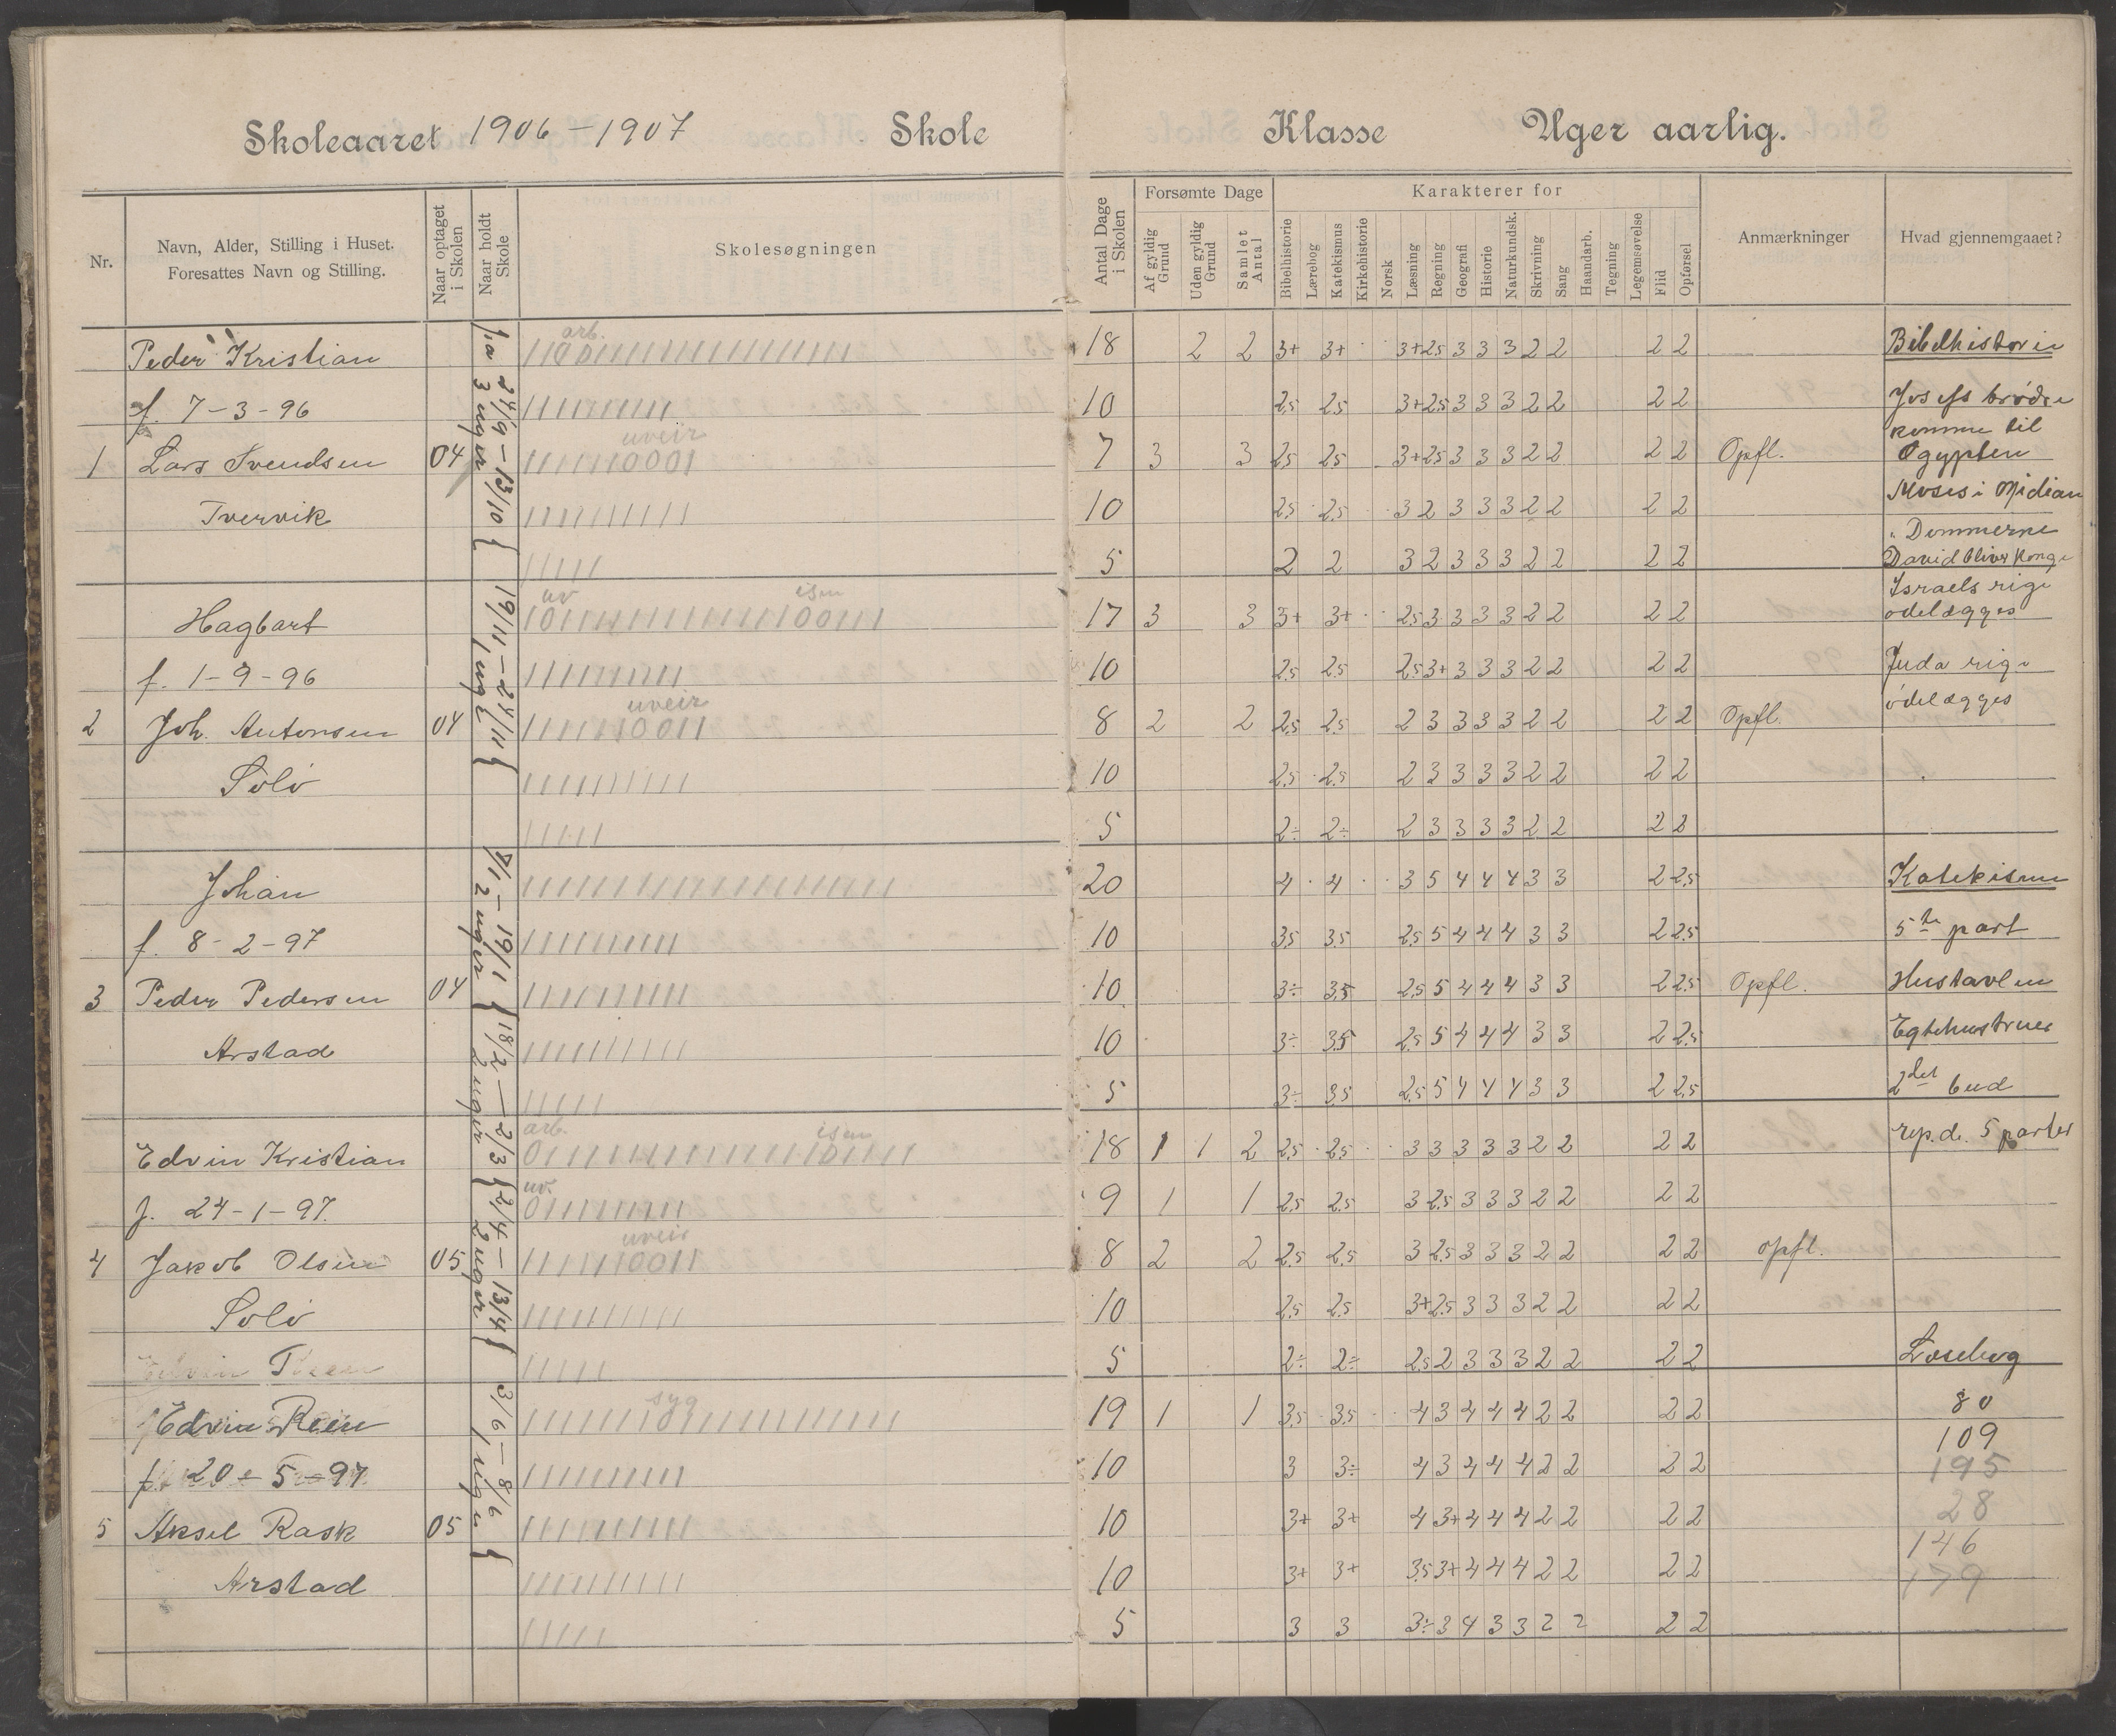 Skoleaaret 1906-1907 Skole Klasse Uger aarlig.
Nr. Navn, Alder, Stilling i Huset. Foresattes Navn og Stilling. Naar optaget i Skolen Naar holdt Skole Skolesøgningen Antal Dage i Skolen Forsømte Dage Af gyldig Grund Uden gyldig Grund Samlet Antal Karakterer for Bibelhistorie Lærebog Katekismus Kirkehistorie Norsk Læsning Regning Geografi Historie Naturkundsk. Skrivning Sang Haandarb. Tegning Legemsøvelse Flid Opførsel Anmærkninger Hvad gjennemgaaet?
24/9 - 13/10
3 uger
19/11 - 24/11
1 uge
7/1 - 19/1
2 uger
18/2 - 2/3
2 uger
2/4 - 13/4
2 uger
3/6 - 8/6
1 uge
arb.
Peder Kristian 18 2 2 3+ 3+ 3+ 2.5 3 3 3 2 2 2 2 Bibelhistorie
f. 7-3-96 10 2.5 2.5 3+ 2.5 3 3 3 2 2 2 2 Josefs brødre
komme til
uveir
1 Lars Svendsen 04 7 3 3 2.5 2.5 3+ 2.5 3 3 3 2 2 2 2 Opfl. Ægypten
Tvervik 10 2.5 2.5 3 2 3 3 3 2 2 2 2 Moses i Midian
Dommerne
5 2 2 3 2 3 3 3 2 2 2 2 David bliver Konge
Israels rige
uv isen
Hagbart 17 3 3 3+ 3+ 2.5 3 3 3 3 2 2 2 2 ødelægges
f. 1-9-96 10 2.5 2.5 2.5 3+ 3 3 3 2 2 2 2 Juda rige
uveir
2 Joh. Antonsen 04 8 2 2 2.5 2.5 2 3 3 3 3 2 2 2 2 Opfl. ødelægges
Sølø 10 2.5 2.5 2 3 3 3 3 2 2 2 2
5 2÷ 2÷ 2 3 3 3 3 2 2 2 2
Johan 20 4 4 3 5 4 4 4 3 3 2 2.5 Katekisme
f. 8-2-97 10 3.5 3.5 2.5 5 4 4 4 3 3 2 2.5 5te part
3 Peder Pedersen 04 10 3÷ 3.5 2.5 5 4 4 4 3 3 2 2.5 Opfl. Hustavlen
Arstad 10 3÷ 3.5 2.5 5 4 4 4 3 3 2 2.5 Egtehustruer
5 3÷ 3.5 2.5 5 4 4 4 3 3 2 2.5 2det bud
arb. isen
Edvin Kristian 18 1 1 2 2.5 2.5 3 3 3 3 3 2 2 2 2 rep. de 5 parter
uv.
f. 24-1-97. 9 1 1 2.5 2.5 3 2.5 3 3 3 2 2 2 2
uveir
4 Jakob Olsen 05 8 2 2 2.5 2.5 3 2.5 3 3 3 2 2 2 2 opfl.
Sølø 10 2.5 2.5 3+ 2.5 3 3 3 2 2 2 2
5 2÷ 2÷ 2.5 2 3 3 3 2 2 2 2 Læsebog
syg
Edvin Rein 19 1 1 3.5 3.5 4 3 4 4 4 2 2 2 2 80
109
f. 20-5-97 10 3 3÷ 4 3 4 4 4 2 2 2 2 195
5 Aksel Rask 05 10 3+ 3+ 4 3+ 4 4 4 2 2 2 2 28
146
Arstad 10 3+ 3+ 3.5 3+ 4 4 4 2 2 2 2 179
5 3 3 3÷ 3 4 3 3 2 2 2 2